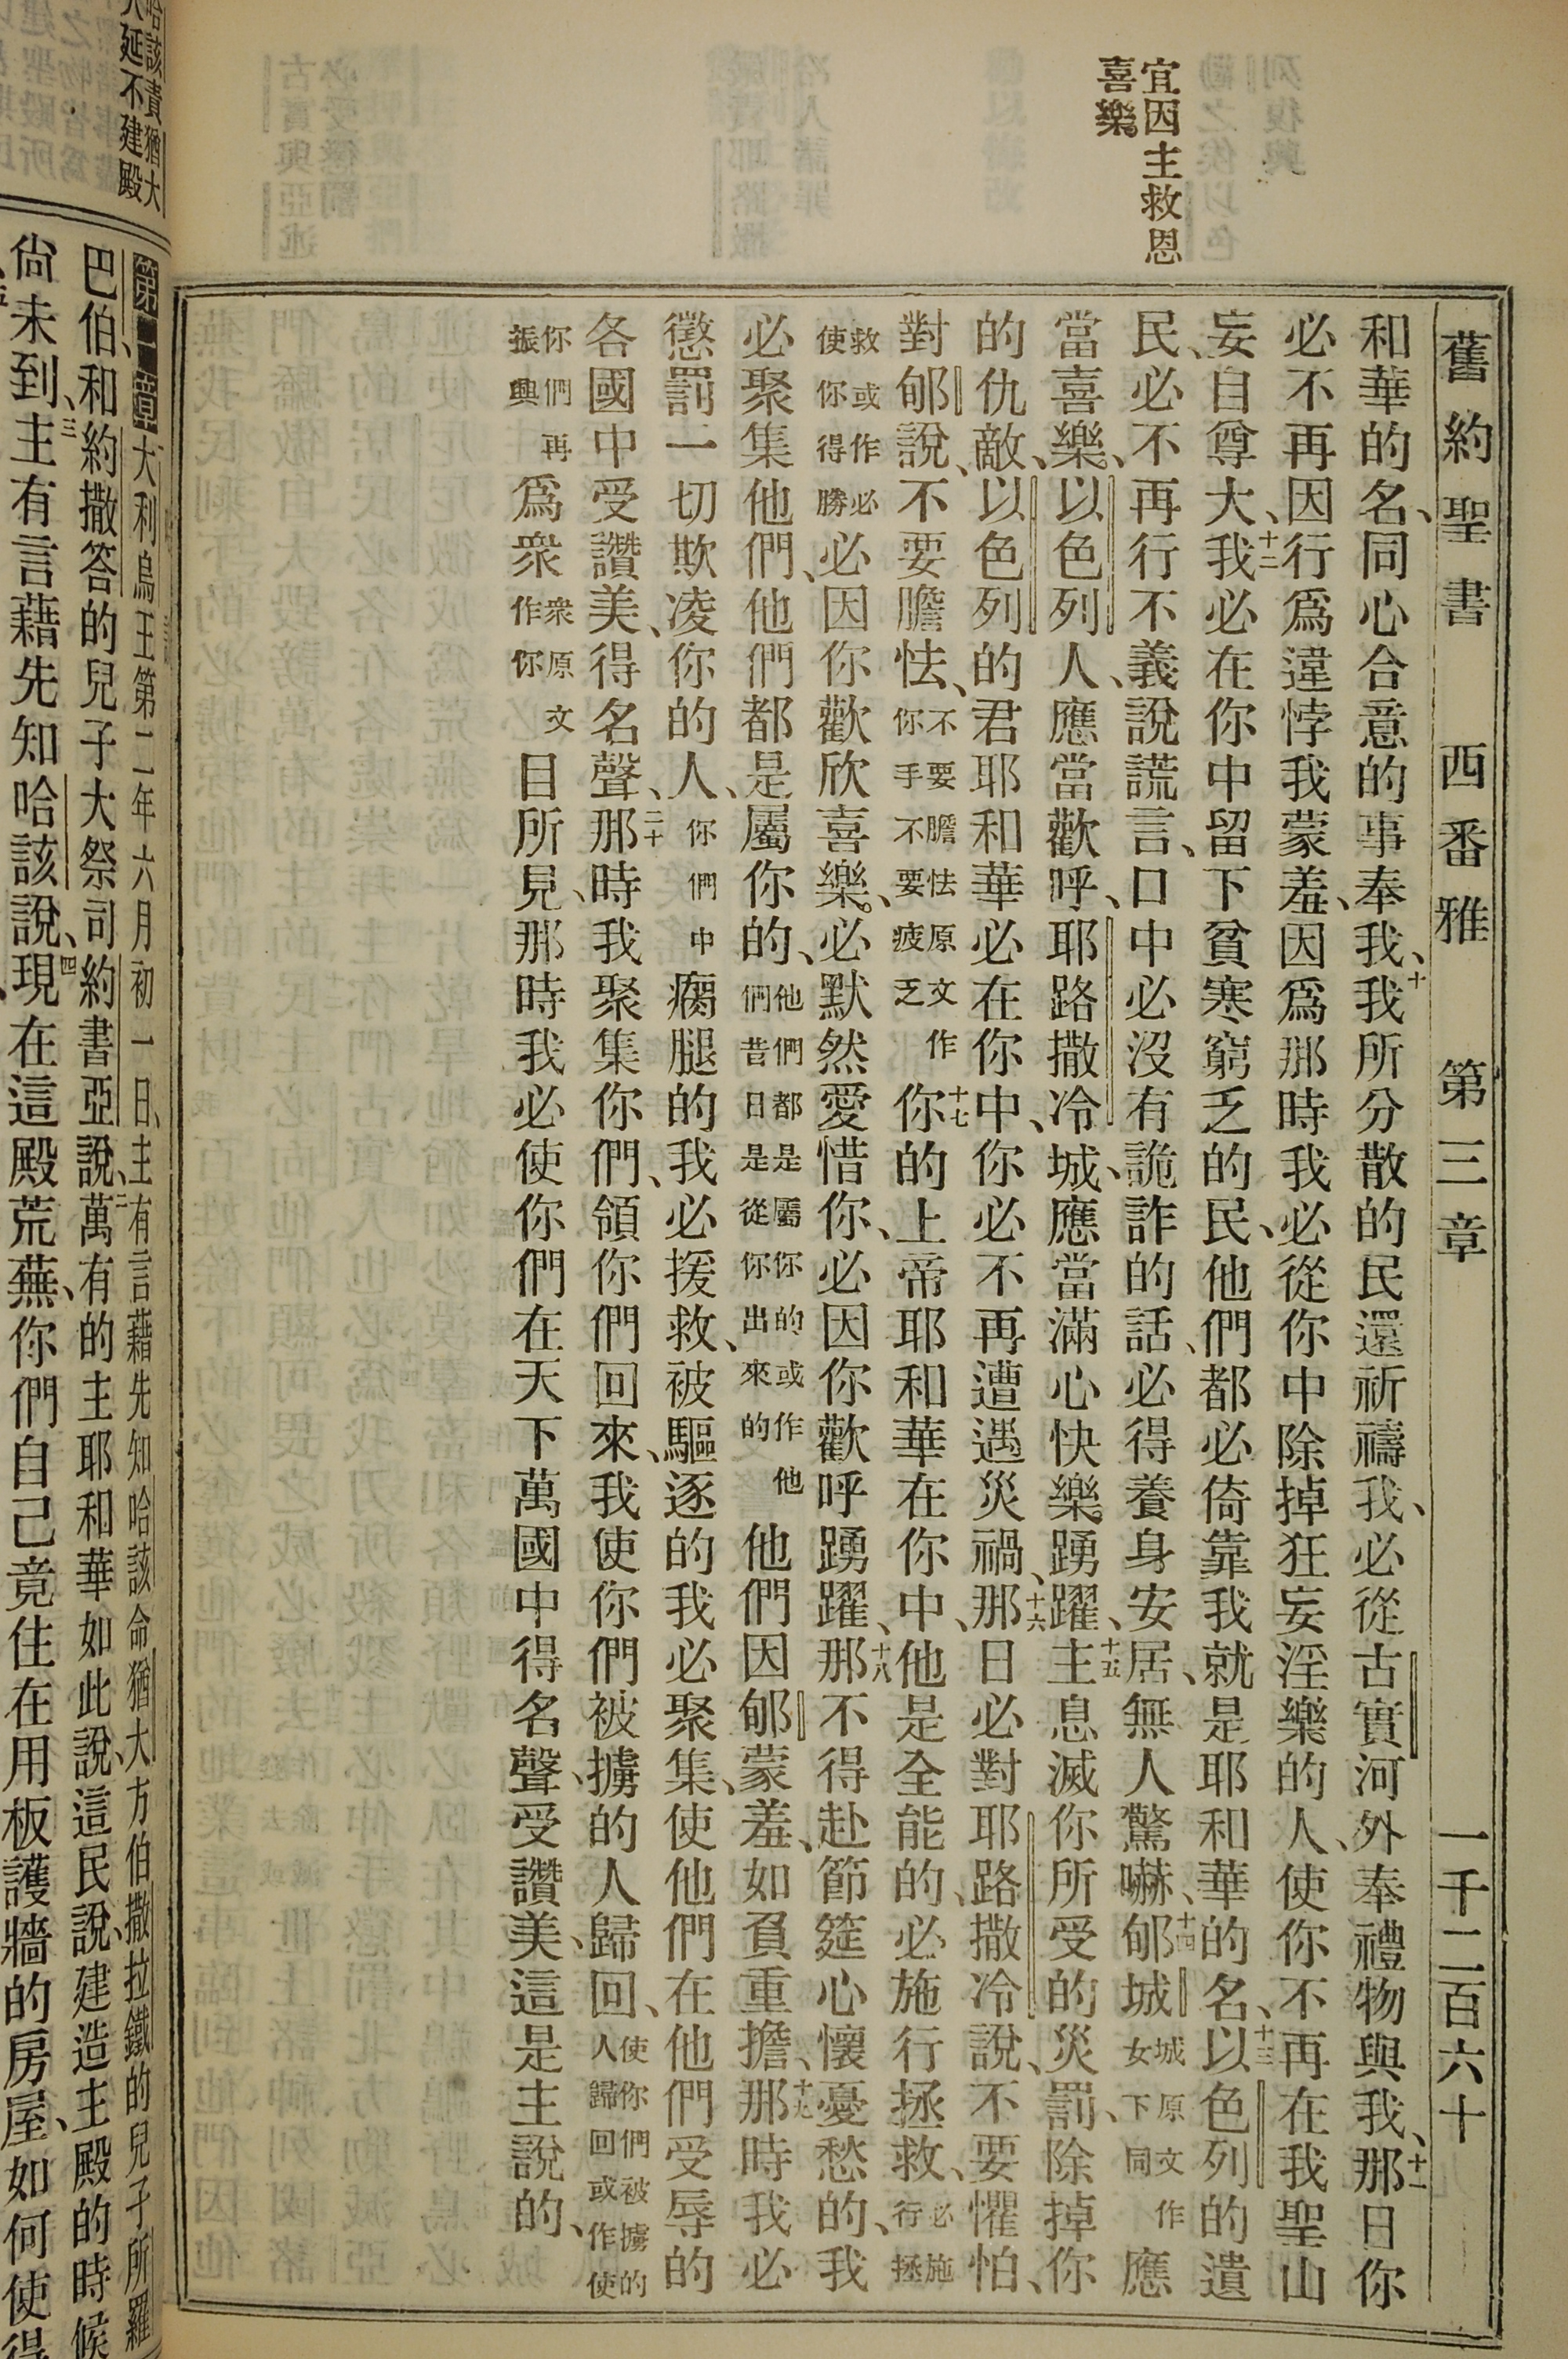 舊約聖書 西番雅 第三章 一千二百六十
宜因主救恩
喜樂
和華的名、同心合意的事奉我、十我所分散的民還祈禱我、必從古實河外奉禮物與我、十一那日你
必不再因行爲違悖我蒙羞、因爲那時我必從你中除掉狂妄淫樂的人、使你不再在我聖山
妄自尊大、十二我必在你中留下貧寒窮乏的民、他們都必倚靠我就是耶和華的名、十三以色列的遺
民、必不再行不義說謊言、口中必沒有詭詐的話、必得養身安居、無人驚嚇、十四郇城城原文作女下同應
當喜樂、以色列人、應當歡呼、耶路撒冷城、應當滿心快樂踴躍、十五主息滅你所受的災罰、除掉你
的仇敵、以色列的君耶和華必在你中、你必不再遭遇災禍、十六那日必對耶路撒冷說、不要懼怕、
對郇說、不要膽怯、不要膽怯原文作你手不要疲乏十七你的上帝耶和華在你中、他是全能的、必施行拯救、必施行拯
救或作必使你得勝必因你歡欣喜樂。必默然愛惜你、必因你歡呼踴躍、十八那不得赴節筵心懷憂愁的、我
必聚集他們、他們都是屬你的、他們都是屬你的或作他們昔日是從你出來的他們因郇蒙羞、如負重擔、十九那時我必
懲罰一切欺凌你的人、你們中瘸腿的我必援救、被驅逐的我必聚集、使他們在他們受辱的
各國中受讚美、得名聲、二十那時我聚集你們、領你們回來、我使你們被擄的人歸回、使你們被擄的人歸回或作使
你們再振興爲衆衆原文作你目所見、那時我必使你們在天下萬國中得名聲、受讚美、這是主說的、
哈該責猶大
人延不建殿
第一章大利烏王第二年六月初一日、主有言藉先知哈該命猶大方伯撒拉鐵的兒子所羅
巴伯、和約撒答的兒子大祭司約書亞說、二萬有的主耶和華如此說、這民說、建造主殿的時候
尙未到、三主有言藉先知哈該說、四現在這殿荒蕪、你們自己竟住在用板護牆的房屋、如何使得